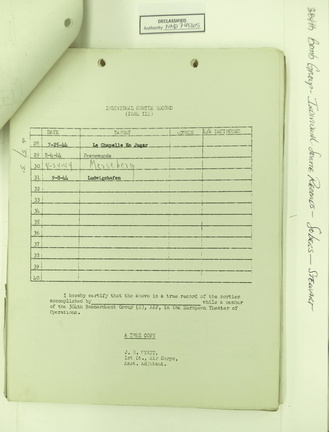 DECLASSIFIED
Authority NND 745005
384th Bomb Group - Individual Sortie Records - Sellers - Stewart
INDIVIDUAL SORTIE RECORD
DATE TARGET
28 7-25-44 La Chapelle En Juger
29 8-4-44 Peenemunde
30 8-24-44 Merseberg
31 9-8-44 Ludwigshafen
32
33
34
35
36
37
38
39
40
I hereby certify that the above is a true record of the sorties
accomplished by while a member
of the 384th Bombardment Group (H), AAF, in the European Theater of
Operations.
A TRUE COPY
1st Lt., Air Corps,
Asst. Adjutant.